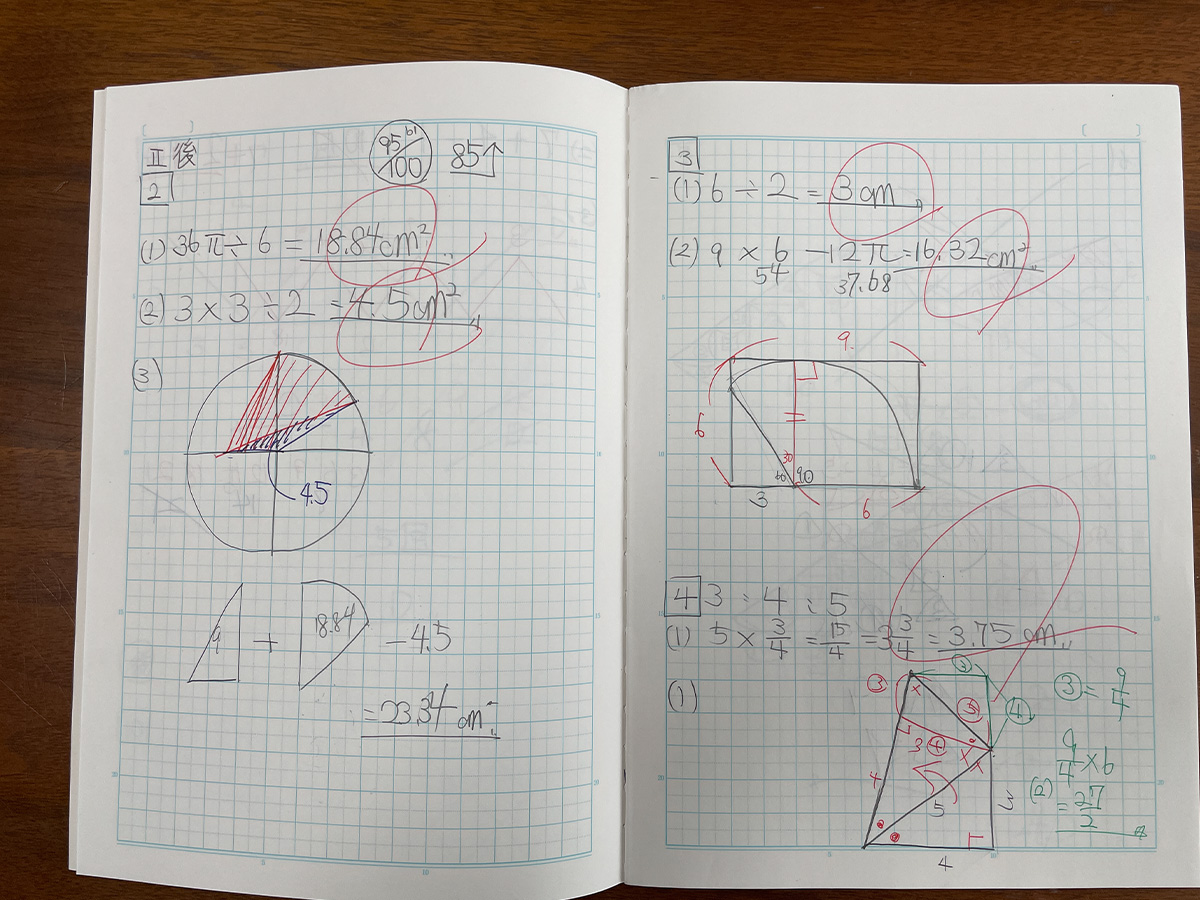 II 後
95/100 61 85↑
2
(1) 36π÷6 = 18.84cm²
(2) 3×3÷2 = 4.5cm²
(3)
4.5
9 + 18.84 - 4.5
= 23.34 cm²
3
(1) 6÷2 = 3cm
(2) 9 × 6 - 12π = 16.32cm²
54 37.68
9
6
30
60 90
3 6
4 3:4:5
(1) 5 × 3/4 = 15/4 = 3 3/4 = 3.75 cm
(1)
③ ③ ③ = 9/4
× ⑤ ④
3 ④
× × 9/4 × 6
4 5 3 (2) = 27/2
4